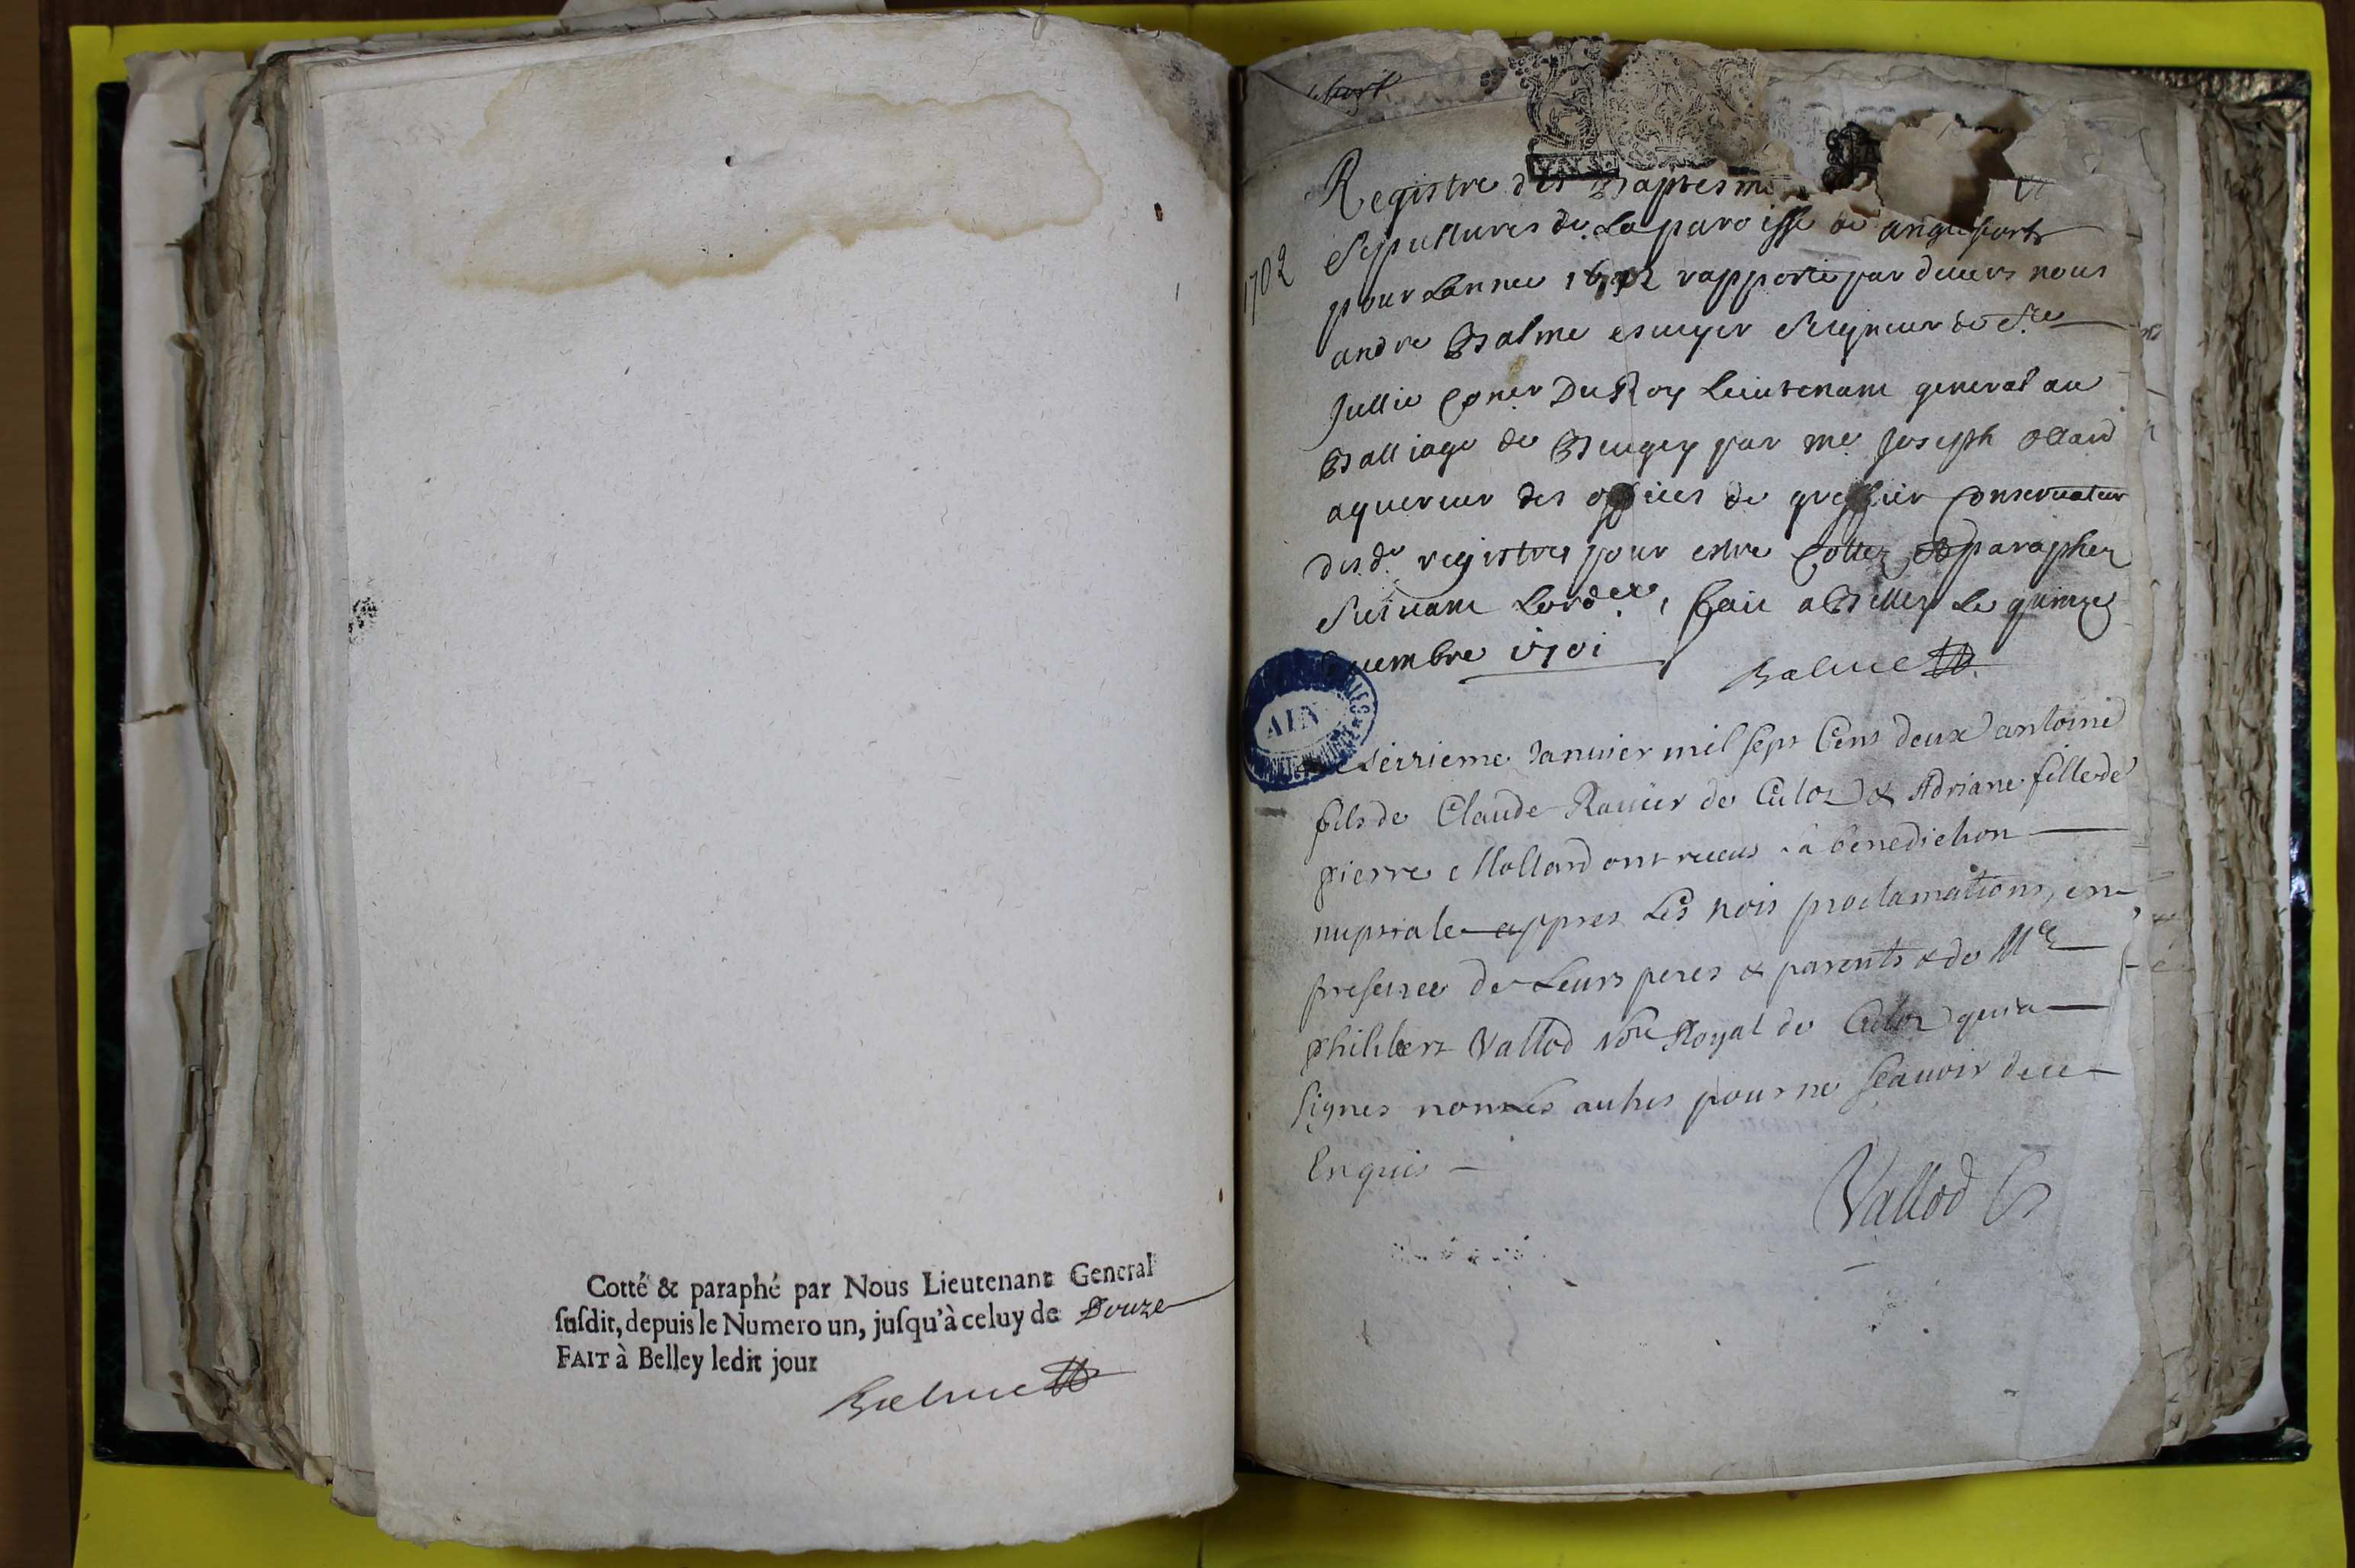 Cotté & paraphé par Nous Lieutenant General
ſuſdit, depuis le Numero un, juſqu'à celuy de Douze
FAIT à Belley ledit jour
Balme
1702
Registre des Baptesme
Sepultures de La paroisse de anglefort
pour Lannee rapporté par deuers nous
andre Balme escuyer Seigneur de Ste
Jullie Coner Du Roy Lieutenant general au
Balliage de Beugey par me Joseph
aquereur des offices de greffier Conseruateur
desd. registres pour estre Cottez & paraphez
Suiuant Lord.e, fait a Belley Le quinze
cembre 1701
Balme
AIN
seizieme Januier mil sept Cens deux antoine
fils de Claude Rauier de Culoz & Adriane fille de
pierre Mollard ont receus la benediction
nuptiale appres Les trois proclamations, en
presence de Leurs peres & parents & de Me
philibert Vallod nore Royal de Culoz qui a
signes non Les autres pour ne scauoir de ce
Enquis
Vallod